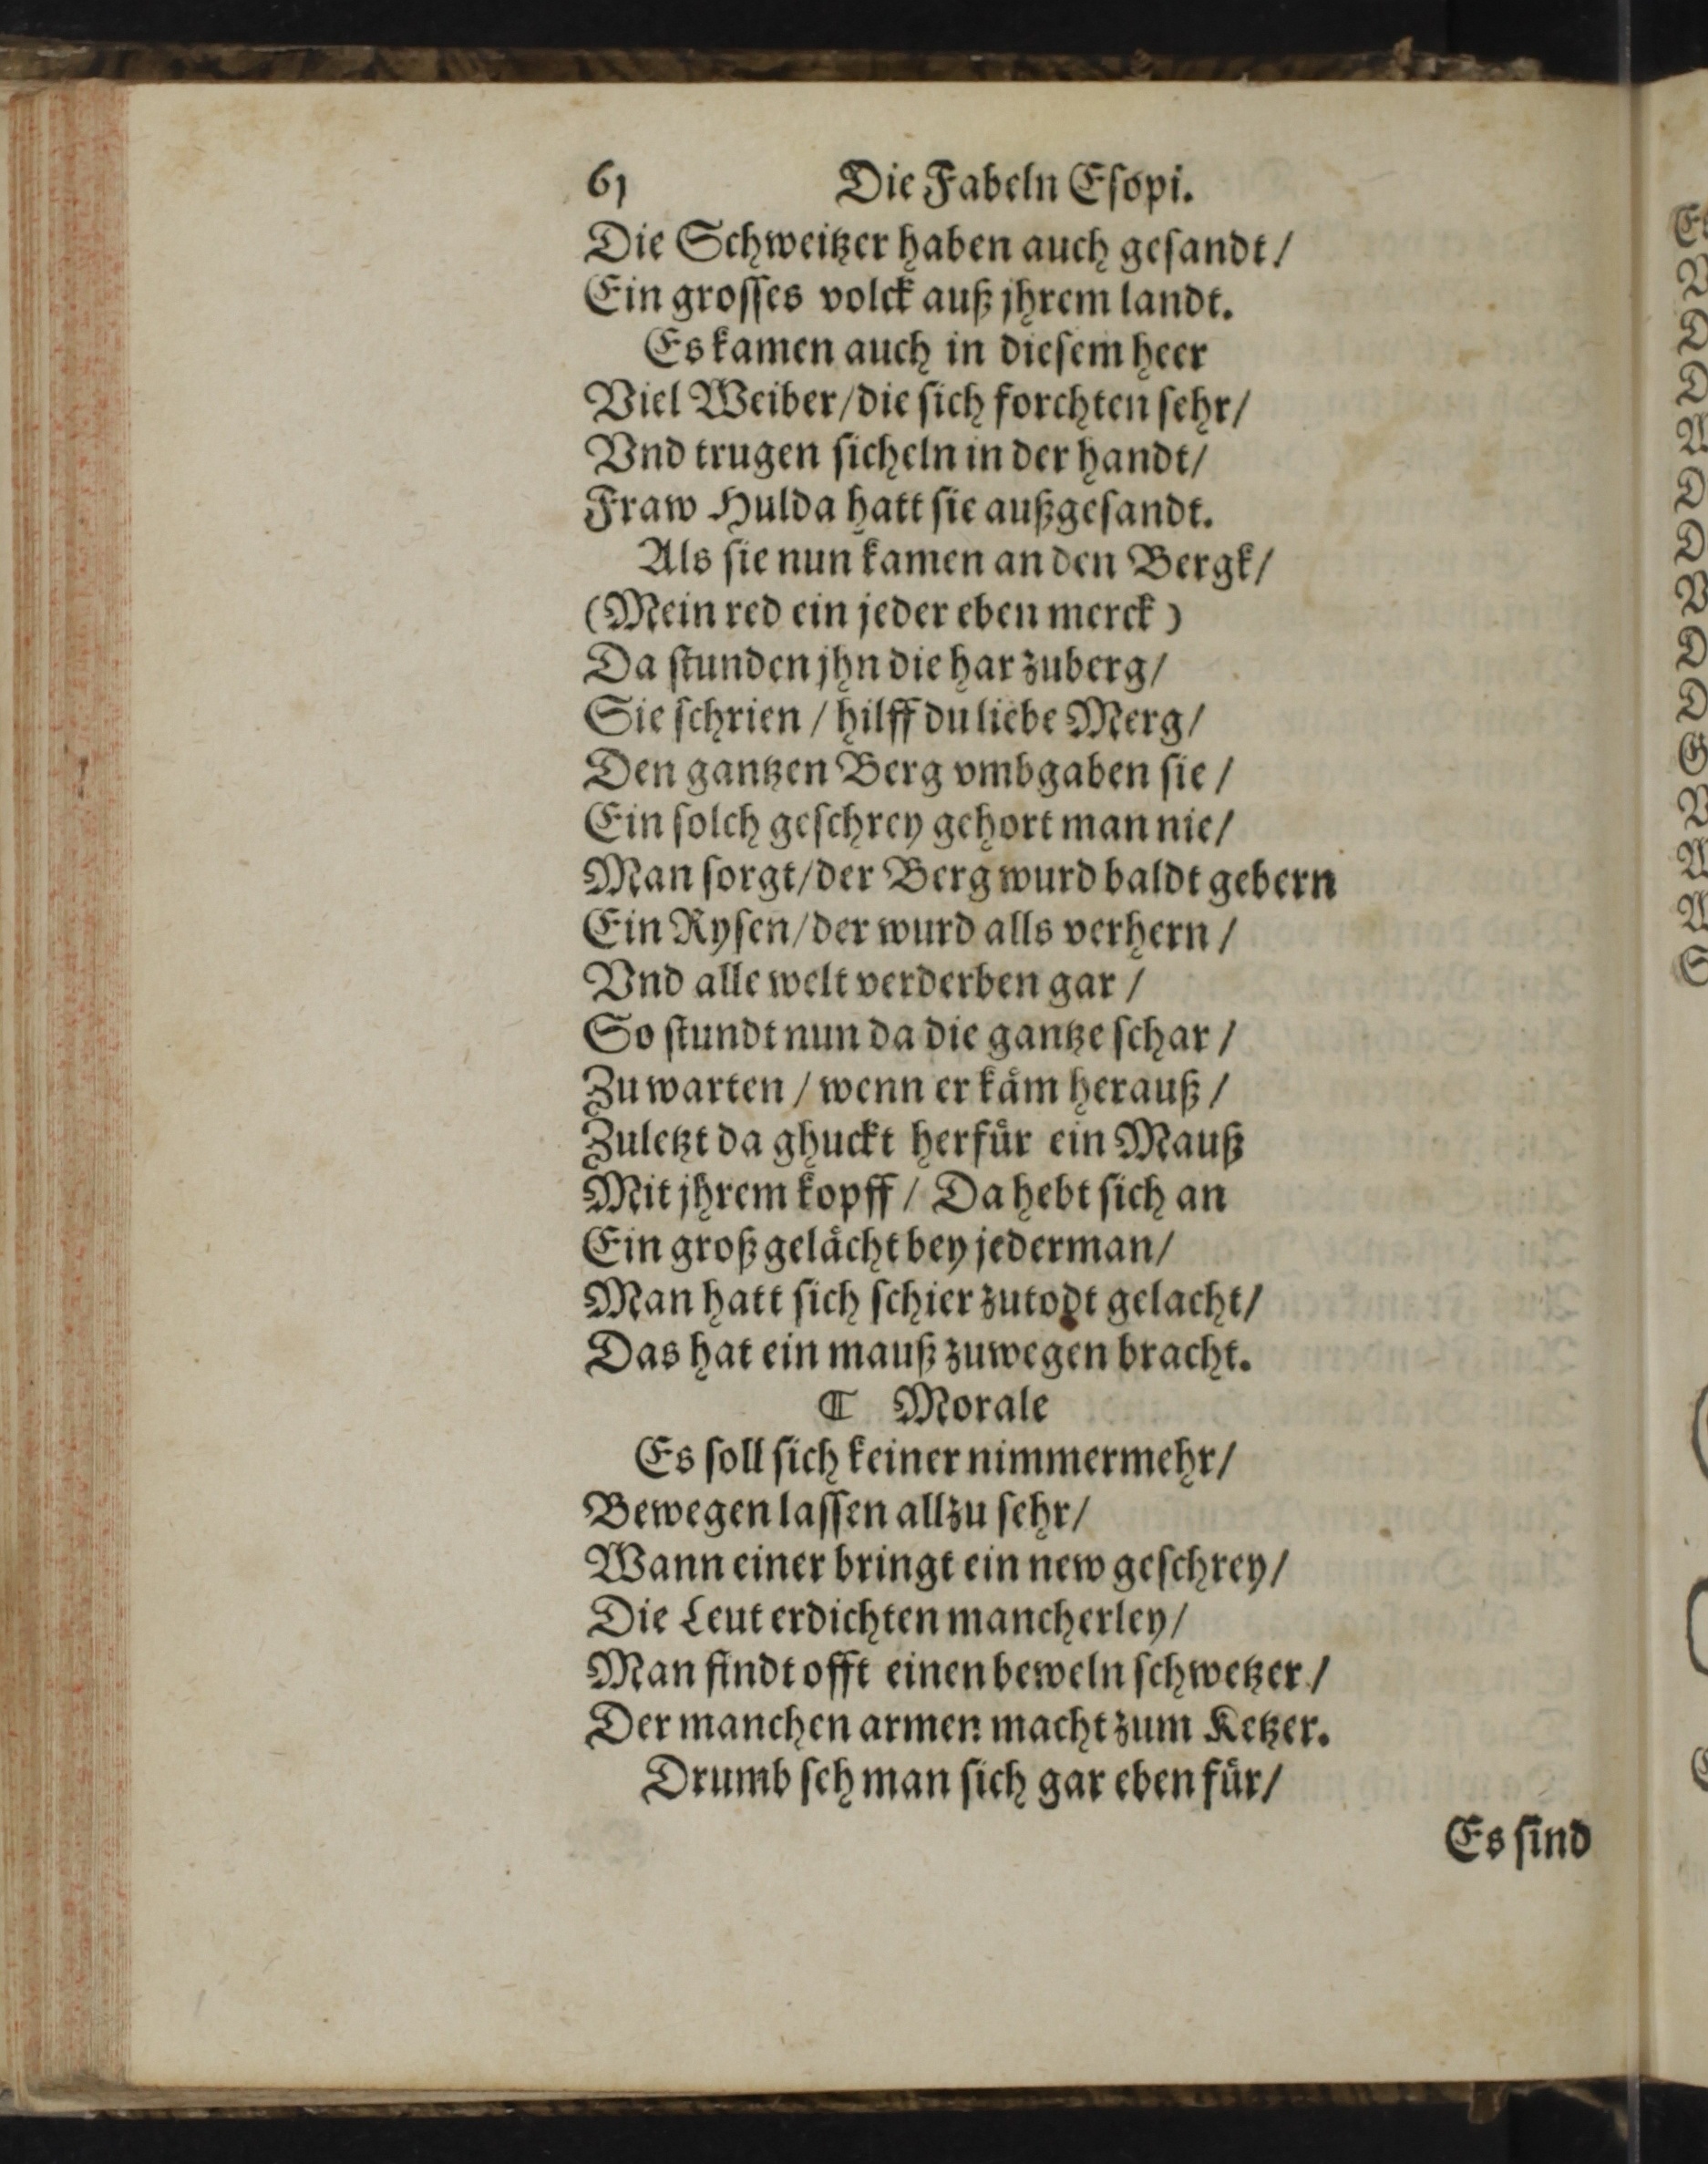 61 Die Fabeln Esopi.
Die Schweitzer haben auch gesandt/
Ein grosses volck auß jhrem landt.
Es kamen auch in diesem heer
Viel Weiber/die sich forchten sehr/
Vnd trugen sicheln in der handt/
Fraw Hulda hatt sie außgesandt.
Als sie nun kamen an den Bergk/
(Mein red ein jeder eben merck)
Da stunden jhn die har zuberg/
Sie schrien / hilff du liebe Merg/
Den gantzen Berg vmbgaben sie /
Ein solch geschrey gehort man nie/
Man sorgt/der Berg wurd baldt gebern
Ein Rysen/der wurd alls verhern /
Vnd alle welt verderben gar /
So stundt nun da die gantze schar /
Zu warten / wenn er kåm herauß /
Zuletzt da ghuckt herfůr ein Mauß
Mit jhrem kopff / Da hebt sich an
Ein groß gelåcht bey jederman/
Man hatt sich schier zutodt gelacht/
Das hat ein mauß zuwegen bracht.
❡ Morale
Es soll sich keiner nimmermehr/
Bewegen lassen allzu sehr/
Wann einer bringt ein new geschrey/
Die Leut erdichten mancherley/
Man findt offt einen beweln schwetzer/
Der manchen armen macht zum Ketzer.
Drumb seh man sich gar eben für/
Es sind